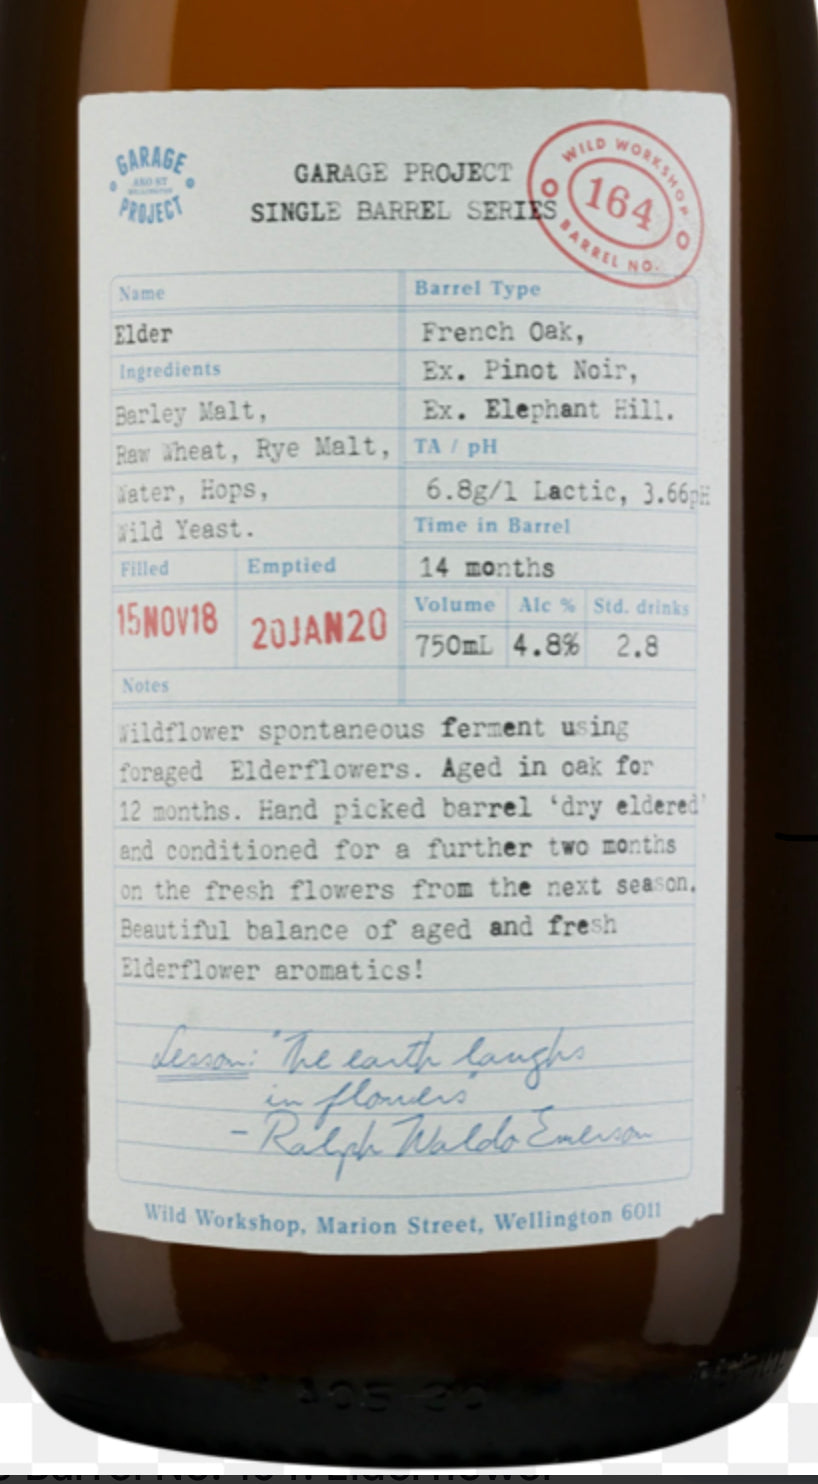 GARAGE
ARO ST
WELLINGTON
PROJECT
GARAGE PROJECT
SINGLE BARREL SERIES
WILD WORKSHOP
164
BARREL NO.
Name
Elder
Ingredients
Barley Malt,
Raw Wheat, Rye Malt,
Water, Hops,
Wild Yeast.
Barrel Type
French Oak,
Ex. Pinot Noir,
Ex. Elephant Hill.
TA / pH
6.8g/l Lactic, 3.66pH
Time in Barrel
14 months
Filled
15NOV18
Emptied
20JAN20
Volume
750mL
Alc %
4.8%
Std. drinks
2.8
Notes
Wildflower spontaneous ferment using
foraged Elderflowers. Aged in oak for
12 months. Hand picked barrel ‘dry eldered’
and conditioned for a further two months
on the fresh flowers from the next season.
Beautiful balance of aged and fresh
Elderflower aromatics!
Lesson: "The earth laughs
in flowers"
- Ralph Waldo Emerson
Wild Workshop, Marion Street, Wellington 6011